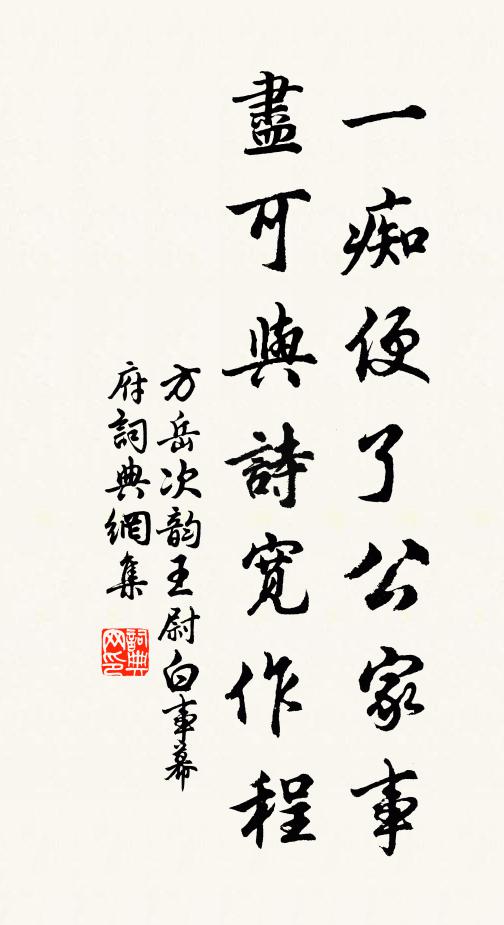 一痴便了公家事
盡可與詩寬作程
方岳次韵王尉白事幕
府詞典網集
詞典网印